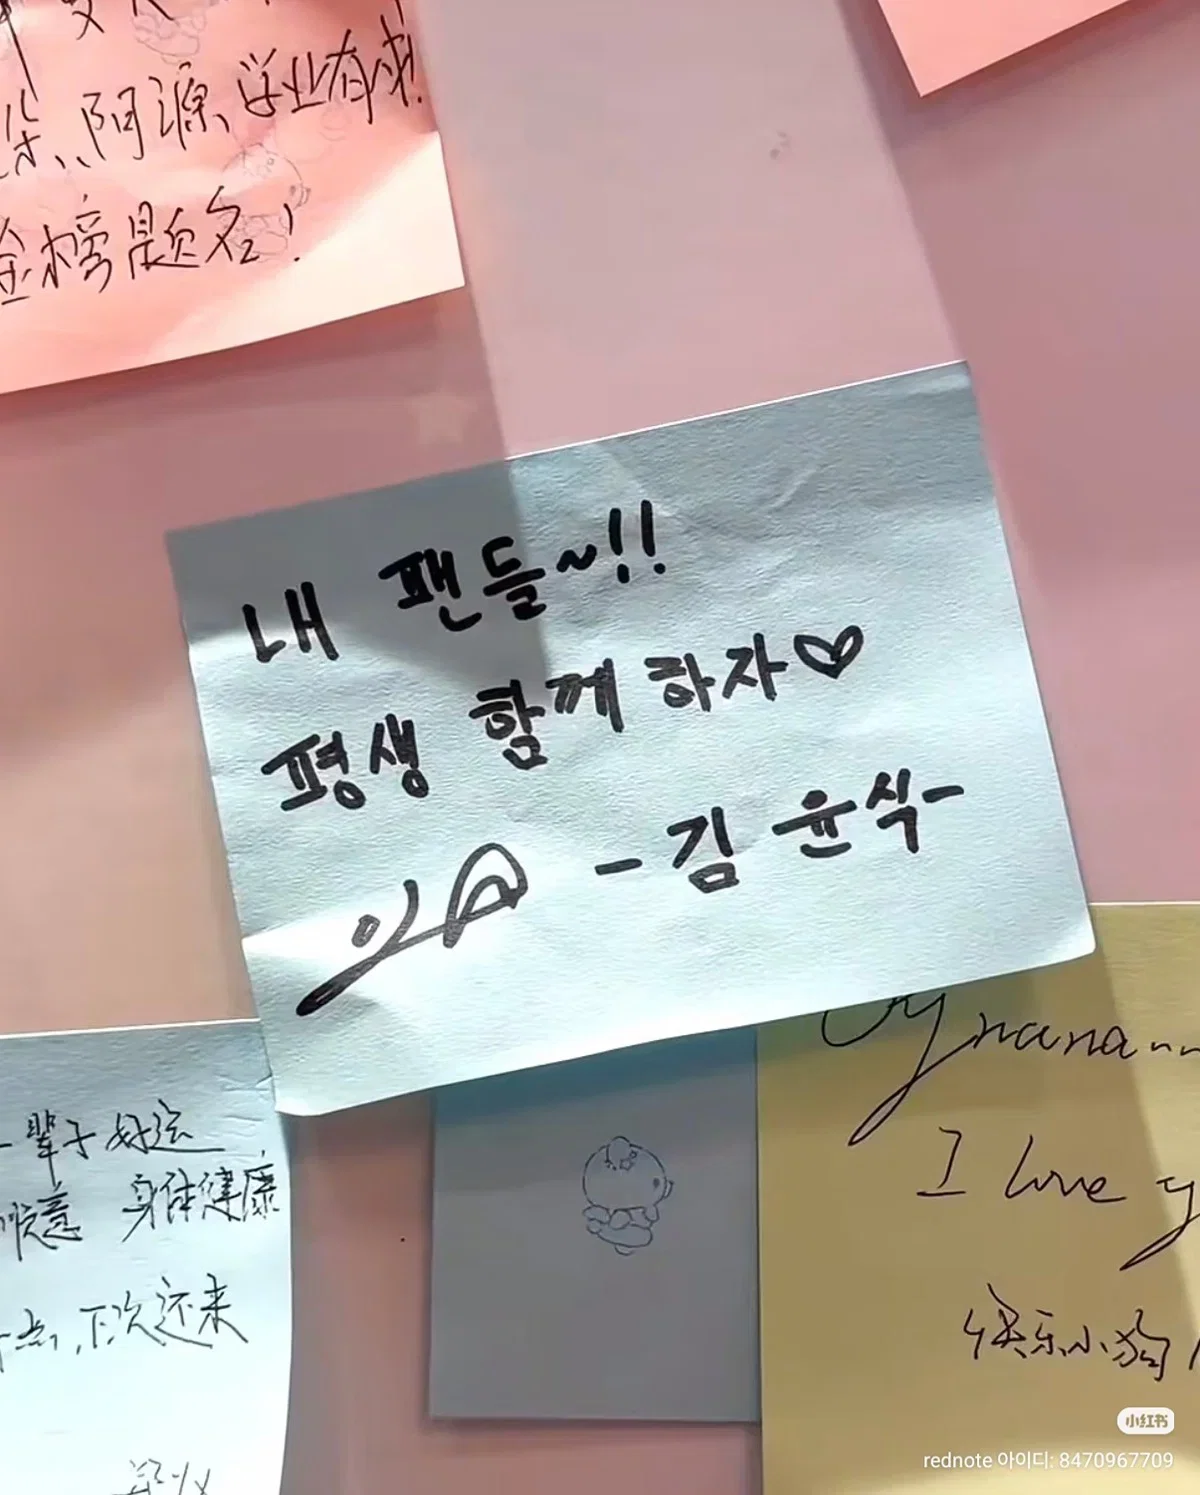 阿源、学业有成!
金榜题名!
내 팬들~!!
평생 함께 하자♡
-김 윤식-
一辈子好运
顺意 身体健康
点,下次还来
I love y
快乐小狗
小红书
rednote 아이디: 8470967709